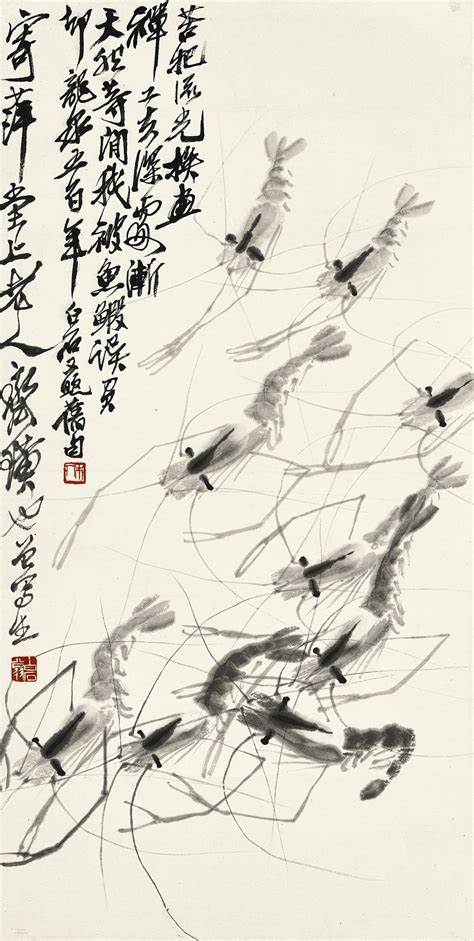 苦把流光換畫
禪工夫深處漸
天然等閒我被魚鰕誤負
却龍泉五百年白石又題舊句
寄萍堂上老人齊璜也曾寫生